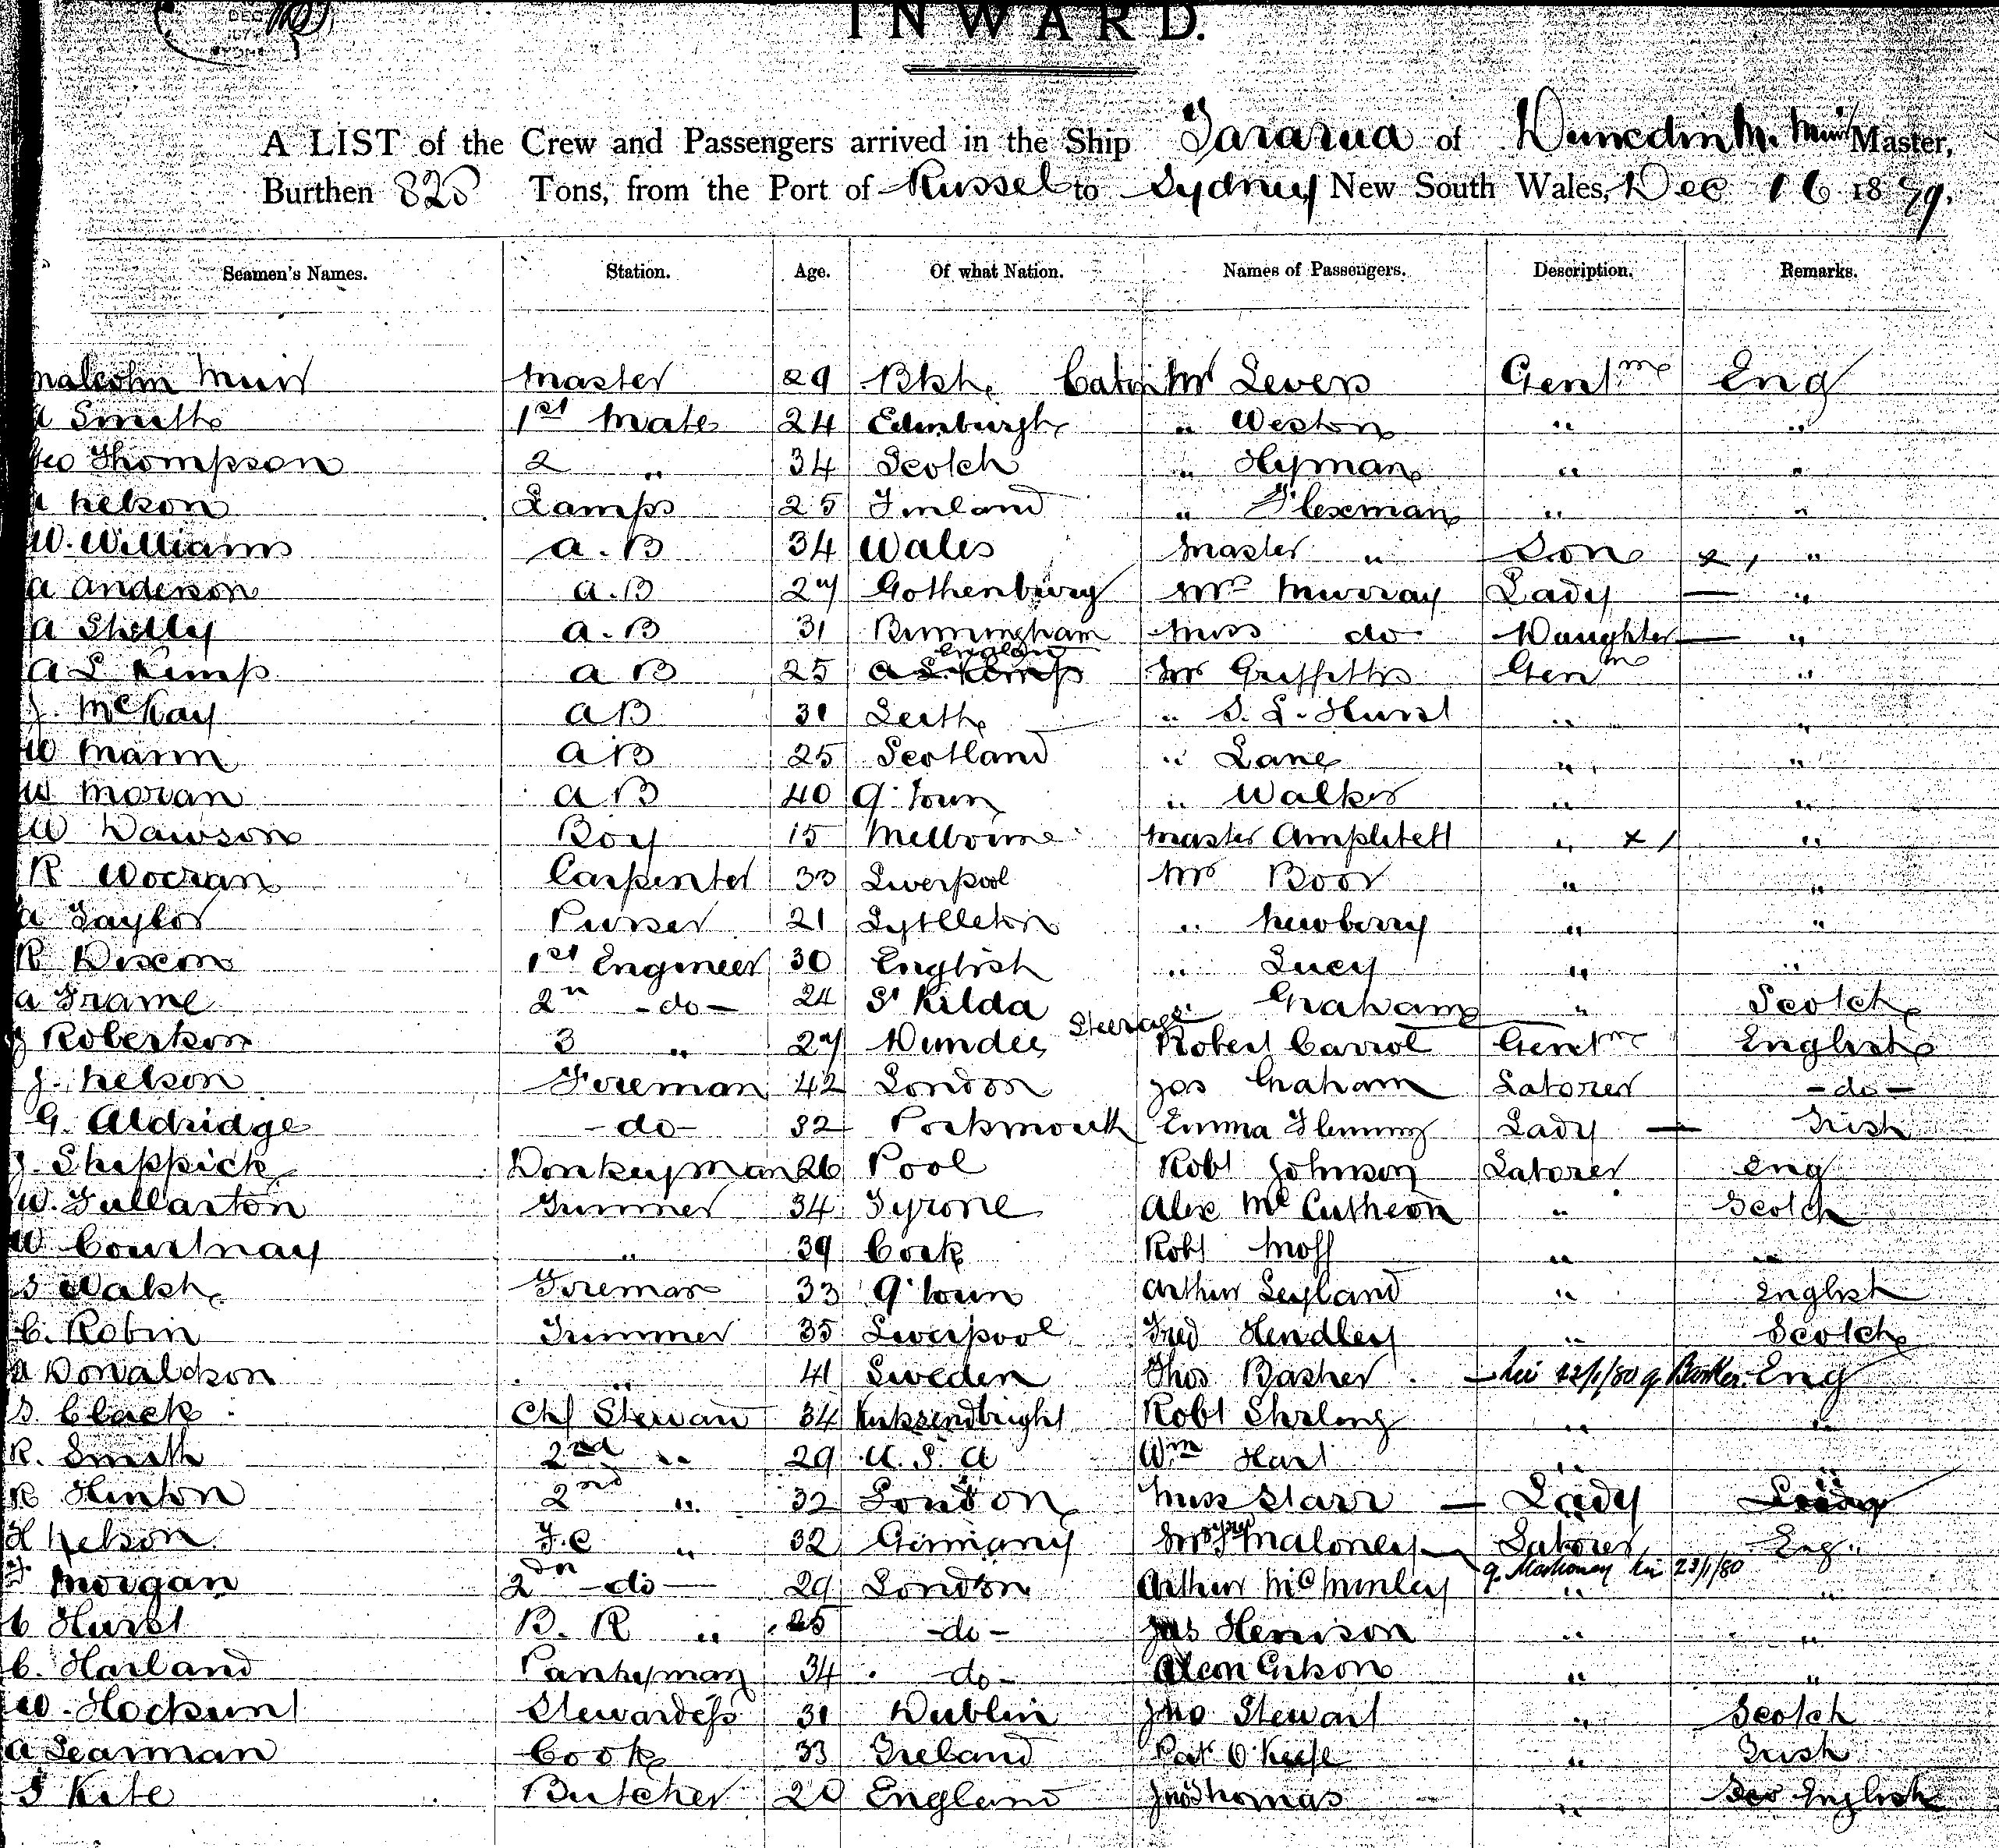 INWARD.
A LIST of the Crew and Passengers arrived in the Ship Tararua of Dunedin M. Muir Master,
Burthen 828 Tons, from the Port of Russel to Sydney New South Wales, Dec 16 1879.
Seamen's Names. Station. Age. Of what Nation. Names of Passengers. Description. Remarks.
Malcolm Muir Master 29 Cabin Mr Levers Gentm Eng
A Smith 1st Mate 24 Edinburgh " Weston " "
Geo Thompson 2 " 34 Scotch " Hyman " "
A Nelson Lamps 25 Finland " Flexman " "
W. Williams A.B 34 Wales Master " Son x 1 "
A Anderson A.B 27 Gothenburg Mrs Murray Lady — "
A Shelly A.B 31 Birmingham Miss do Daughter — "
England
A L Kemp A B 25 A L Kemp Mr Griffiths Genm "
J. McKay A B 31 Leith " S. L. Hurst " "
W Mann A B 25 Scotland " Lane " "
W Moran A B 40 Q. Town " Walker " "
W Dawson Boy 15 Melborne Master Ampletett " x 1 "
R Wocran Carpenter 33 Liverpool Mr Boor " "
A Taylor Purser 21 Lyttleton " Newberry " "
R Dixon 1st Engineer 30 English " Lucy " "
A Frame 2n -do- 24 St Kilda " Graham " Scotch
Steerage
J Robertson 3 " 27 Dundee Robert Carrol Gentm English
J. Nelson Fireman 42 London Jas Graham Laborer -do-
G. Aldridge -do- 32 Portsmouth Emma Fleming Lady — Irish
J. Sheppick Donkeyman 26 Pool Robt Johnson Laborer Eng
W. Fullarton Trimmer 34 Tyrone Alex McCutheon " Scotch
W Courtnay " 39 Cork Robt Moff " "
S Walsh Fireman 33 Q'Town Arthur Leyland " English
C. Robin Trimmer 35 Liverpool Fred Hendley " Scotch
A Donaldson " 41 Sweden Thos Basher — 22/1/80 q. Barker Eng
S Clack Chf Stewart 34 Kirkcendbright Robt Sterling " "
R. Smith 2nd " 29 U.S.A Wm Hart "
R Hinton 2nd " 32 London Miss Starr — Lady
H Nelson F.C " 32 Germany Maloney Laborer Eng
q. Mahoney 23/1/80
Morgan 2nd -do- 29 London Arthur McMinley " "
C Hurst B. R " 25 -do- Jas Henison " "
C. Harland Pantryman 34 -do- " "
W. Hocksun Stewardess 31 Dublin Jno Stewart " Scotch
A Learman Cook 33 Ireland Pat O'Keefe " Irish
S Kite Butcher 20 England Jno Thomas " English